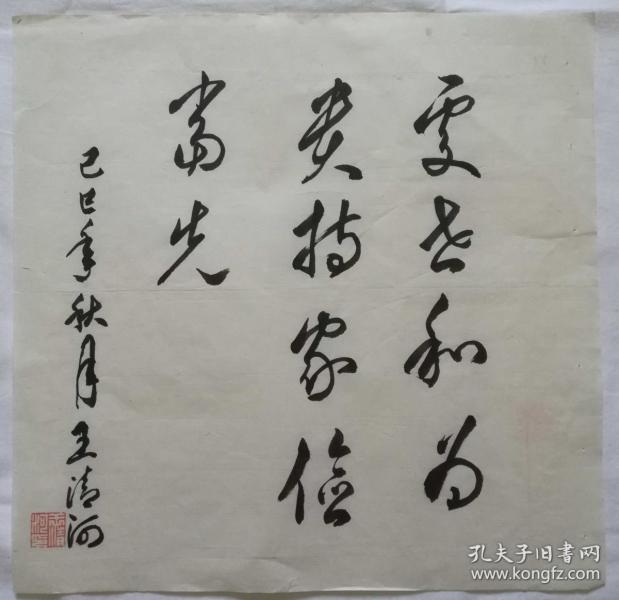 处世和为
贵持家俭
当先
己巳年秋月王清河
孔夫子旧书网
www.kongfz.com